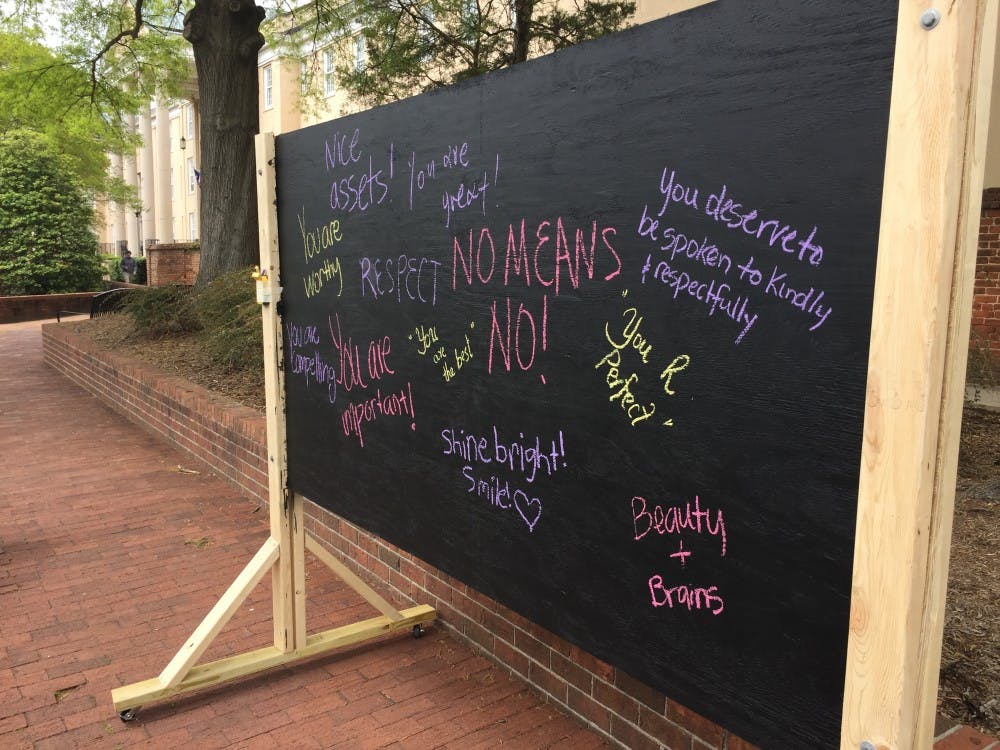 Nice
assets!
You are
great!
You are
worthy
RESPECT
NO MEANS
NO!
You deserve to
be spoken to Kindly
& respectfully
You are
compelling
You are
important!
"You
are
the best"
"You R
Perfect"
Shine bright!
Smile! ♡
Beauty
+
Brains